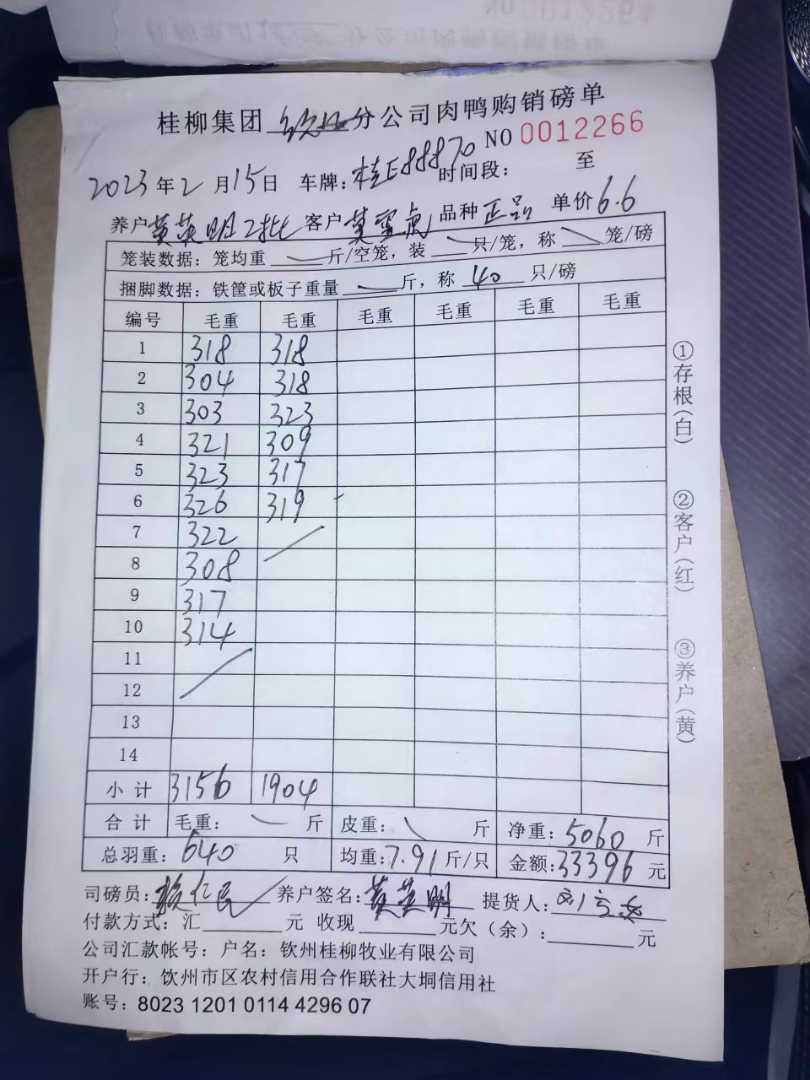 桂柳集团 钦州 分公司肉鸭购销磅单
NO 0012266
2023 年 2 月 15 日 车牌: 桂E88870 时间段: 至
养户 黄英明2批 客户 品种 正品 单价 6.6
笼装数据: 笼均重 斤/空笼, 装 只/笼, 称 笼/磅
捆脚数据: 铁筐或板子重量 斤, 称 40 只/磅
编号 毛重 毛重 毛重 毛重 毛重 毛重
1 318 318
2 304 318
3 303 323
4 321 309
5 323 317
6 326 319
7 322
8 308
9 317
10 314
11
12
13
14
小计 3156 1904
合计 毛重: 斤 皮重: 斤 净重: 5060 斤
总羽重: 640 只 均重: 7.91 斤/只 金额: 33396 元
司磅员: 养户签名: 黄英明 提货人:
付款方式: 汇 元 收现 元欠(余): 元
公司汇款帐号: 户名: 钦州桂柳牧业有限公司
开户行: 钦州市区农村信用合作联社大垌信用社
账号: 8023 1201 0114 4296 07
①存根(白) ②客户(红) ③养户(黄)